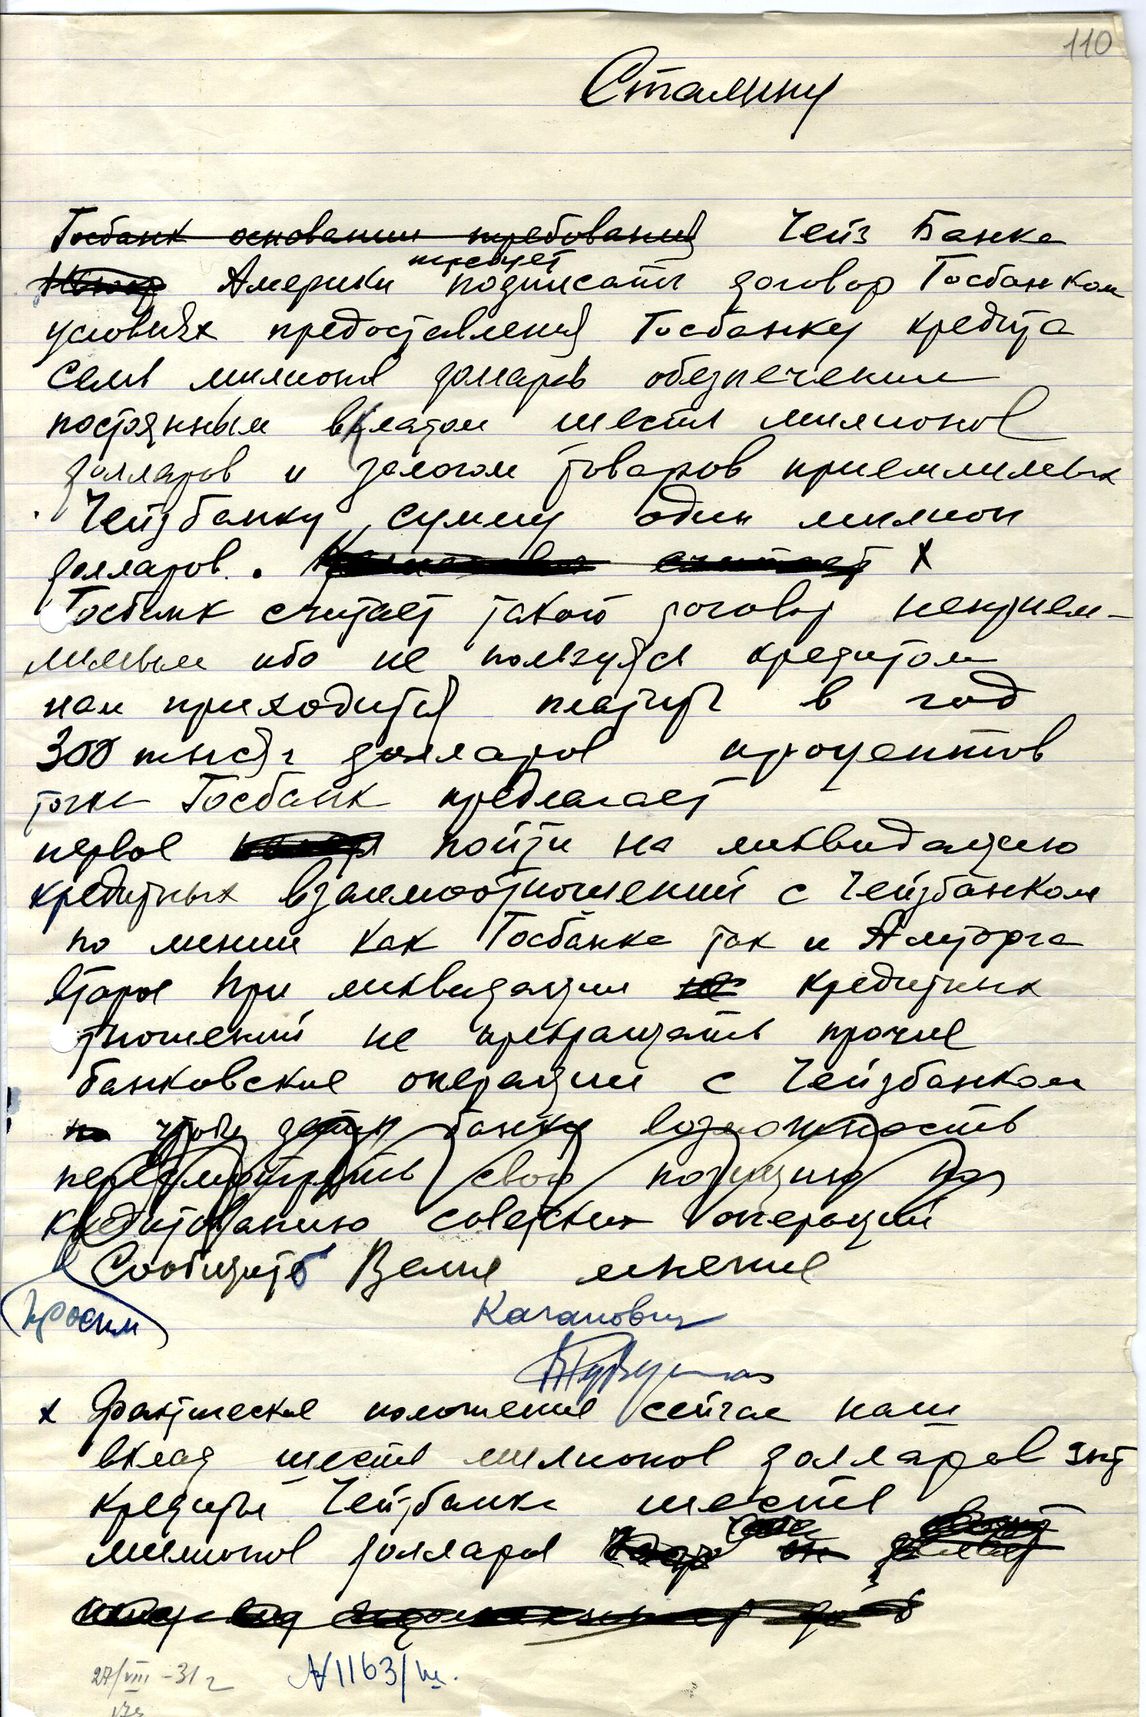 110
Сталину
Госбанк основании требования Чейз Банк
требует
Америки подписать договор Госбанком
условиях предоставления Госбанку кредита
семь милионов доларов обезпечении
постоянным вкладом шести милионов
долларов и залогом товаров приемлимых
Чейзбанку сумму один милион
долларов. считает х
Госбанк считает такой договор неприем-
лимым ибо не пользуясь кредитом
нам приходится платить в год
300 тысяч долларов процентов
точка Госбанк предлагает
первое пойти на ликвидацию
кредитных взаимоотношений с Чейзбанком
по линии как Госбанка так и Амторга
второе При ликвидации не кредитных
отношений не прекращать прочие
банковские операции с Чейзбанком
чтобы дать банку возможность
пересмотреть свою позицию по
кредитованию советских операций
Сообщить Ваше мнение
Просим Каганович
х Фактическое положение сейчас наш
вклад шесть милионов долларов зпт
кредиты Чейзбанка шесть
милионов долларов
27/VIII-31 г №1163/ш.